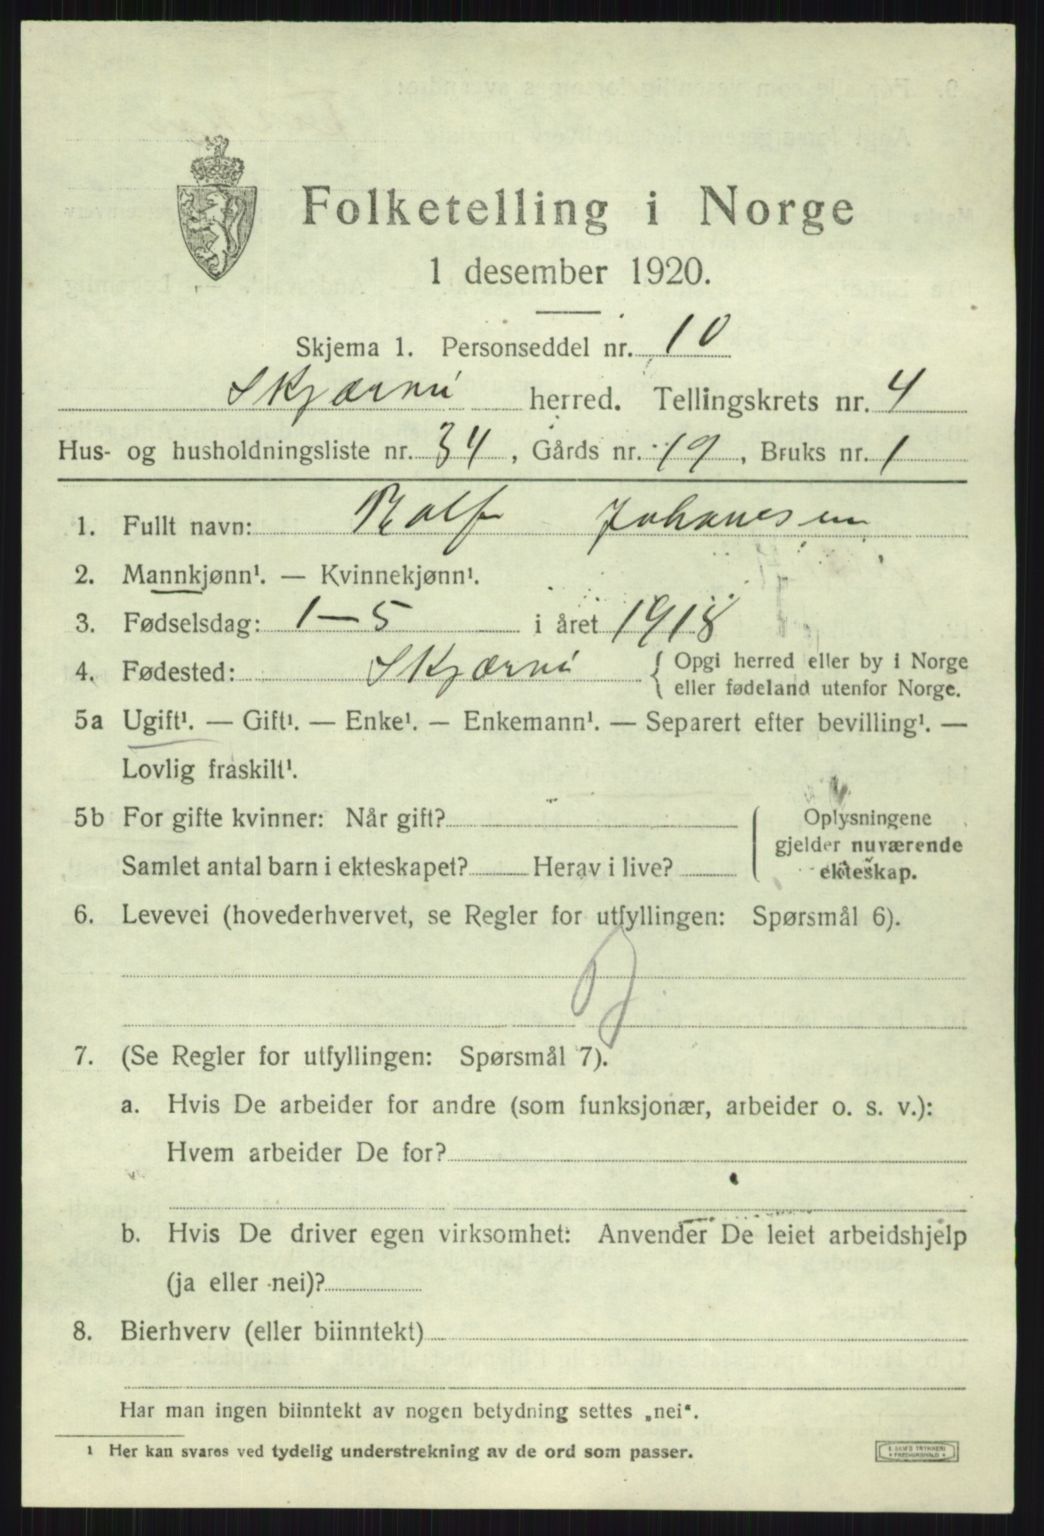 Folketelling i Norge
1 desember 1920.
Skjema 1. Personseddel nr. 10
Skjærvø herred. Tellingskrets nr. 4
Hus- og husholdningsliste nr. 34, Gårds nr. 19, Bruks nr. 1
1. Fullt navn: Rolf Johansen
2. Mannkjønn¹. — Kvinnekjønn¹.
3. Fødselsdag: 1-5 i året 1918
4. Fødested: Skjærvø { Opgi herred eller by i Norge
eller fødeland utenfor Norge.
5a Ugift¹. — Gift¹. — Enke¹. — Enkemann¹. — Separert efter bevilling¹. —
Lovlig fraskilt¹.
5b For gifte kvinner: Når gift?
Samlet antal barn i ekteskapet? Herav i live?
Oplysningene
gjelder nuværende
ekteskap.
6. Levevei (hovederhvervet, se Regler for utfyllingen: Spørsmål 6).
7. (Se Regler for utfyllingen: Spørsmål 7).
a. Hvis De arbeider for andre (som funksjonær, arbeider o. s. v.):
Hvem arbeider De for?
b. Hvis De driver egen virksomhet: Anvender De leiet arbeidshjelp
(ja eller nei)?
8. Bierhverv (eller biinntekt)
Har man ingen biinntekt av nogen betydning settes „nei“.
¹ Her kan svares ved tydelig understrekning av de ord som passer.